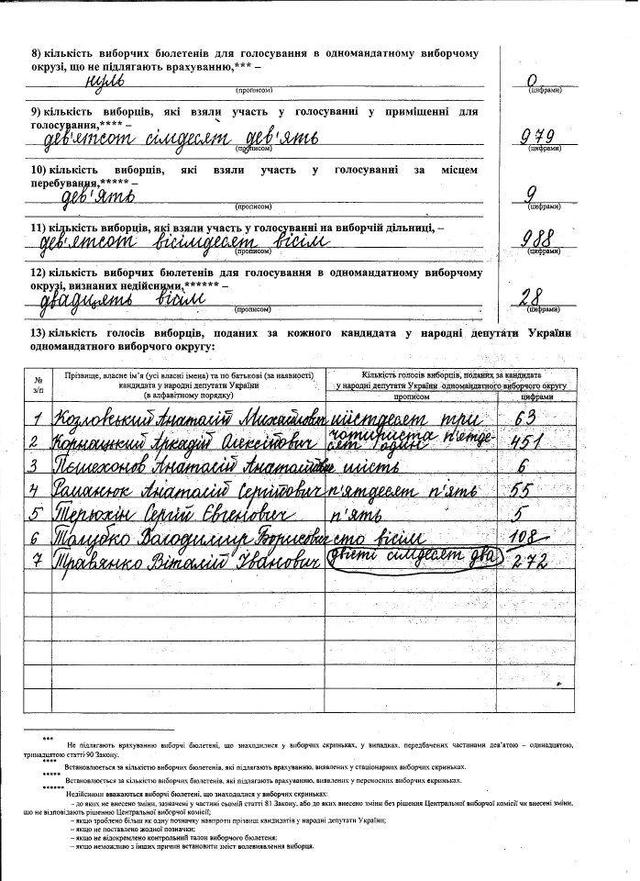 8) кількість виборчих бюлетенів для голосування в одномандатному виборчому
окрузі, що не підлягають врахуванню,*** –
нуль 0
(прописом) (цифрами)
9) кількість виборців, які взяли участь у голосуванні у приміщенні для
голосування,**** –
дев'ятсот сімдесят дев'ять 979
(прописом) (цифрами)
10) кількість виборців, які взяли участь у голосуванні за місцем
перебування,***** –
дев'ять 9
(прописом) (цифрами)
11) кількість виборців, які взяли участь у голосуванні на виборчій дільниці, –
дев'ятсот вісімдесят вісім 988
(прописом) (цифрами)
12) кількість виборчих бюлетенів для голосування в одномандатному виборчому
окрузі, визнаних недійсними,****** –
двадцять вісім 28
(прописом) (цифрами)
13) кількість голосів виборців, поданих за кожного кандидата у народні депутати України
одномандатного виборчого округу:
№ з/п
Прізвище, власне ім'я (усі власні імена) та по батькові (за наявності)
кандидата у народні депутати України
(в алфавітному порядку)
Кількість голосів виборців, поданих за кандидата
у народні депутати України одномандатного виборчого округу
прописом цифрами
1 Козловський Анатолій Михайлович шістдесят три 63
2 Корнацький Аркадій Олексійович чотириста п'ятдесят один 451
3 Пєшехонов Анатолій Анатолійович шість 6
4 Романюк Анатолій Сергійович п'ятдесят п'ять 55
5 Терьохін Сергій Євгенович п'ять 5
6 Толубко Володимир Борисович сто вісім 108
7 Травянко Віталій Іванович двісті сімдесят два 272
***
Не підлягають врахуванню виборчі бюлетені, що знаходилися у виборчих скриньках, у випадках, передбачених частинами дев'ятою – одинадцятою,
тринадцятою статті 90 Закону.
****
Встановлюється за кількістю виборчих бюлетенів, які підлягають врахуванню, виявлених у стаціонарних виборчих скриньках.
*****
Встановлюється за кількістю виборчих бюлетенів, які підлягають врахуванню, виявлених у переносних виборчих скриньках.
******
Недійсними вважаються виборчі бюлетені, що знаходилися у виборчих скриньках:
– до яких не внесено зміни, зазначені у частині сьомій статті 81 Закону, або до яких внесено зміни без рішення Центральної виборчої комісії чи внесені зміни,
що не відповідають рішенню Центральної виборчої комісії;
– якщо зроблено більш як одну позначку навпроти прізвищ кандидатів у народні депутати України;
– якщо не поставлено жодної позначки;
– якщо не відокремлено контрольний талон виборчого бюлетеня;
– якщо неможливо з інших причин встановити зміст волевиявлення виборця.